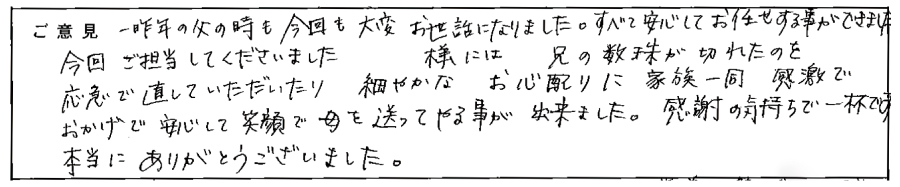 ご意見 一昨年の父の時も今回も大変お世話になりました。すべて安心してお任せする事ができました
今回ご担当してくださいました 様には 兄の数珠が切れたのを
応急で直していただいたり 細やかな お心配りに 家族一同 感激で
おかげで安心して笑顔で母を送ってやる事が出来ました。感謝の気持ちで一杯です
本当にありがとうございました。